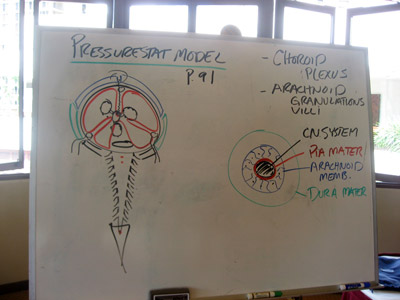 PRESSURESTAT MODEL
P 91
- CHOROID
PLEXUS
- ARACHNOID
GRANULATIONS
VILLI
CNSYSTEM
PIA MATER
ARACHNOID
MEMB.
DURA MATER